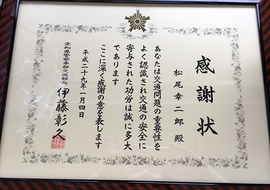 感謝状
松尾幸二郎 殿
あなたは交通問題の重要性を
よく認識され交通の安全に
寄与された功労は誠に多大
であります
ここに深く感謝の意を表します
平成二十九年一月四日
伊藤彰久